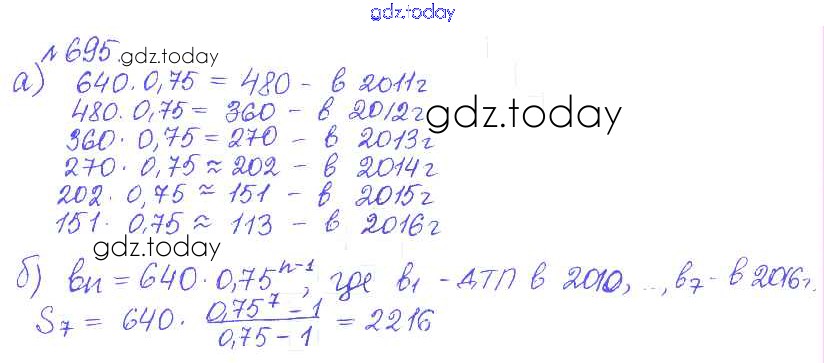 gdz.today
№695 gdz.today
а) 640·0,75 = 480 – в 2011г
480·0,75 = 360 – в 2012г gdz.today
360·0,75 = 270 – в 2013г
270·0,75 ≈ 202 – в 2014г
202·0,75 ≈ 151 – в 2015г
151·0,75 ≈ 113 – в 2016г
gdz.today
б) bn = 640·0,75^n-1, где b1 – ДТП в 2010, ..., b7 – в 2016г.
S7 = 640 · (0,75^7 – 1)/(0,75 – 1) = 2216